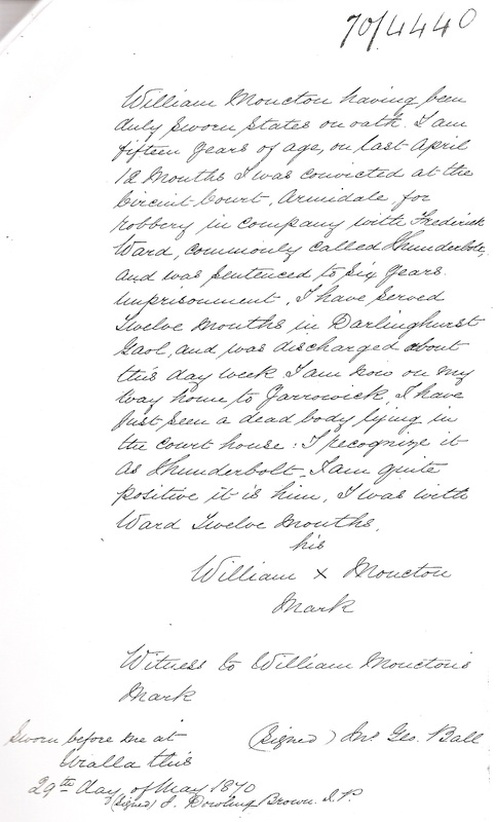 70/4440
William Moucton having been
duly sworn states on oath. I am
fifteen years of age, on last April
12 Months I was convicted at the
Circuit Court, Armidale for
robbery in company with Frederick
Ward, commonly called Thunderbolt,
and was sentenced to six years
imprisonment, I have served
Twelve Months in Darlinghurst
Gaol, and was discharged about
this day week I am now on my
way home to Yarrowick, I have
just seen a dead body lying in
the Court house: I recognize it
as Thunderbolt. I am quite
positive it is him, I was with
Ward Twelve Months.
his
William x Moucton
Mark
Witness to William Moucton's
Mark
(Signed) Geo. Ball
Sworn before me at
Uralla this
29th day of May 1870
(Signed) J. Dowling Brown. J.P.